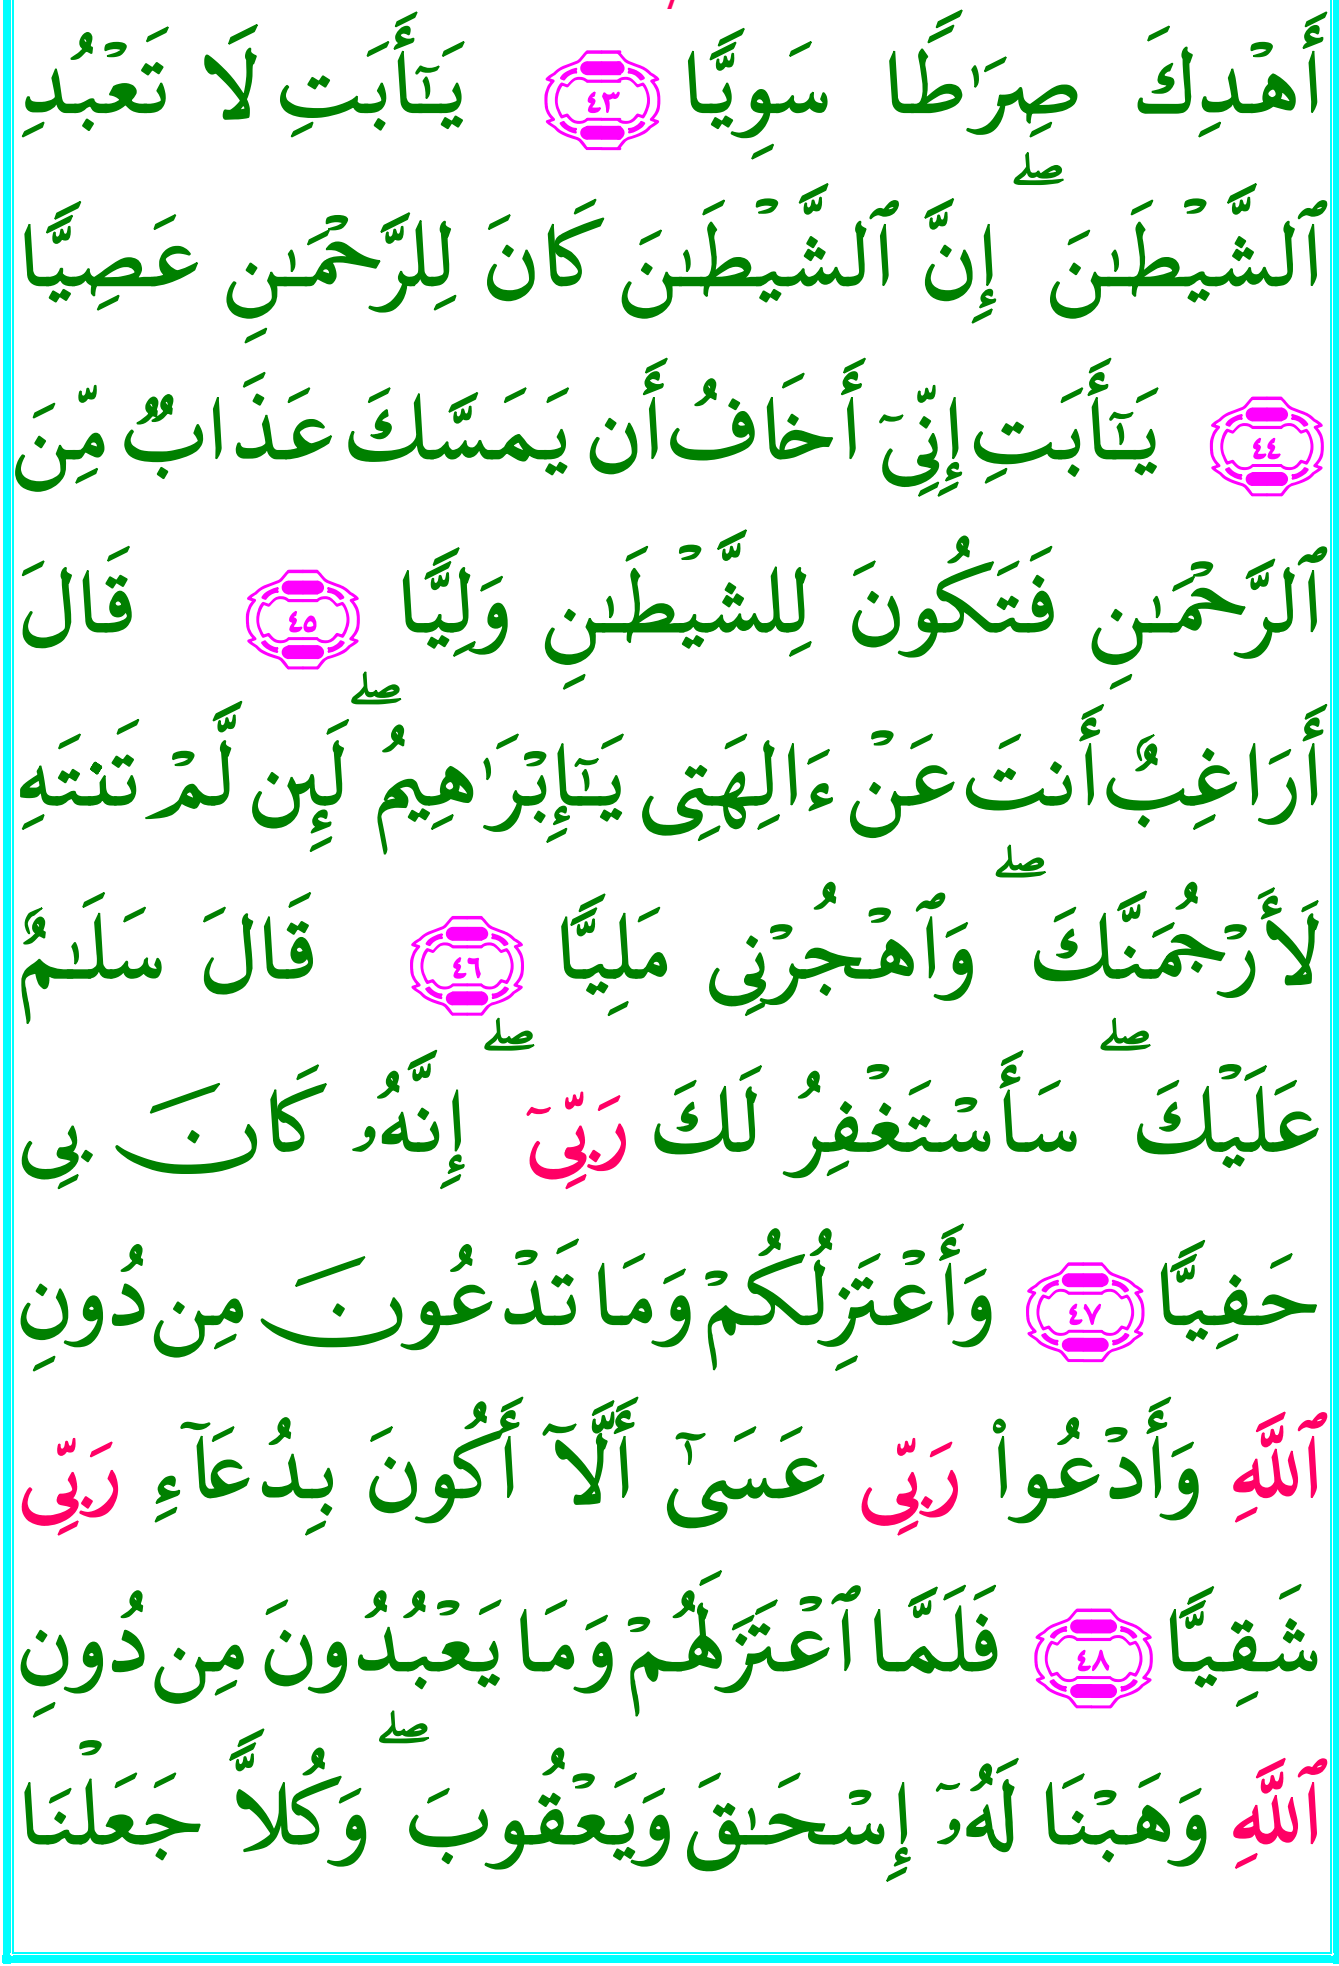 أَهْدِكَ صِرَٰطًا سَوِيًّا ٤٣ يَـٰٓأَبَتِ لَا تَعْبُدِ
ٱلشَّيْطَـٰنَ ۖ إِنَّ ٱلشَّيْطَـٰنَ كَانَ لِلرَّحْمَـٰنِ عَصِيًّا
٤٤ يَـٰٓأَبَتِ إِنِّىٓ أَخَافُ أَن يَمَسَّكَ عَذَابٌ مِّنَ
ٱلرَّحْمَـٰنِ فَتَكُونَ لِلشَّيْطَـٰنِ وَلِيًّا ٤٥ قَالَ
أَرَاغِبٌ أَنتَ عَنْ ءَالِهَتِى يَـٰٓإِبْرَٰهِيمُ ۖ لَئِن لَّمْ تَنتَهِ
لَأَرْجُمَنَّكَ ۖ وَٱهْجُرْنِى مَلِيًّا ٤٦ قَالَ سَلَـٰمٌ
عَلَيْكَ ۖ سَأَسْتَغْفِرُ لَكَ رَبِّىٓ ۖ إِنَّهُۥ كَانَ بِى
حَفِيًّا ٤٧ وَأَعْتَزِلُكُمْ وَمَا تَدْعُونَ مِن دُونِ
ٱللَّهِ وَأَدْعُوا۟ رَبِّى عَسَىٰٓ أَلَّآ أَكُونَ بِدُعَآءِ رَبِّى
شَقِيًّا ٤٨ فَلَمَّا ٱعْتَزَلَهُمْ وَمَا يَعْبُدُونَ مِن دُونِ
ٱللَّهِ وَهَبْنَا لَهُۥٓ إِسْحَـٰقَ وَيَعْقُوبَ ۖ وَكُلاًّ جَعَلْنَا